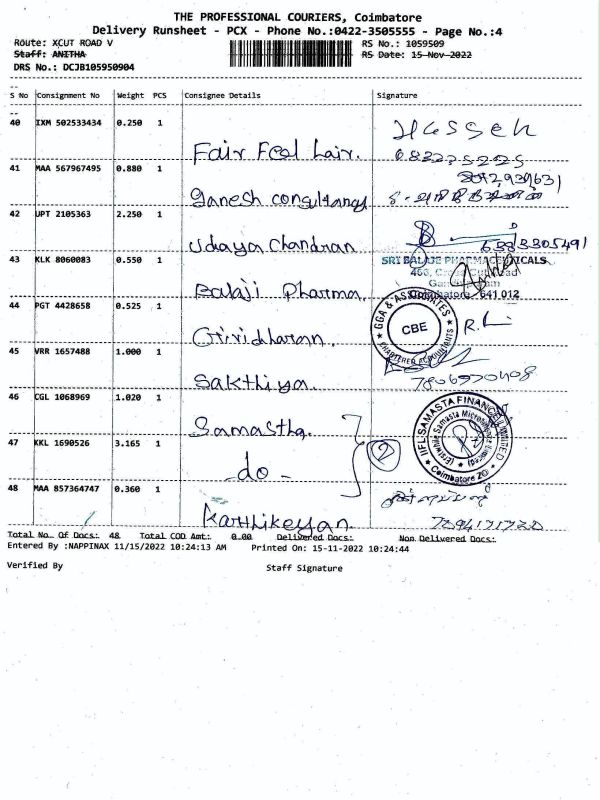 THE PROFESSIONAL COURIERS, Coimbatore
Delivery Runsheet - PCX - Phone No.:0422-3505555 - Page No.:4
Route: XCUT ROAD V RS No.: 1059509
Staff: ANITHA RS Date: 15-Nov-2022
DRS No.: DCJB105950904
S No Consignment No Weight PCS Consignee Details Signature
40 IXM 502533434 0.250 1
Fair Feel hair.
41 MAA 567967495 0.880 1
Ganesh consultancy
42 UPT 2105363 2.250 1
Udaya Chandran 6383305491
43 KLK 8060083 0.550 1 SRI BALAJE PHARMACEUTICALS
Balaji Pharma. Coimbatore - 641 012
44 PGT 4428658 0.525 1
GGA & ASSOCIATES CBE CHARTERED ACCOUNTANTS
Giridharan.
45 VRR 1657488 1.000 1
Sakthiya.
46 CGL 1068969 1.020 1
IIFL SAMASTA FINANCE LIMITED
Samastha.
47 KKL 1690526 3.165 1 2
Coimbatore
-do-
48 MAA 857364747 0.360 1
Karthikeyan.
Total No. Of Docs: 48 Total COD Amt: 0.00 Delivered Docs: Non Delivered Docs:
Entered By :NAPPINAX 11/15/2022 10:24:13 AM Printed On: 15-11-2022 10:24:44
Verified By Staff Signature